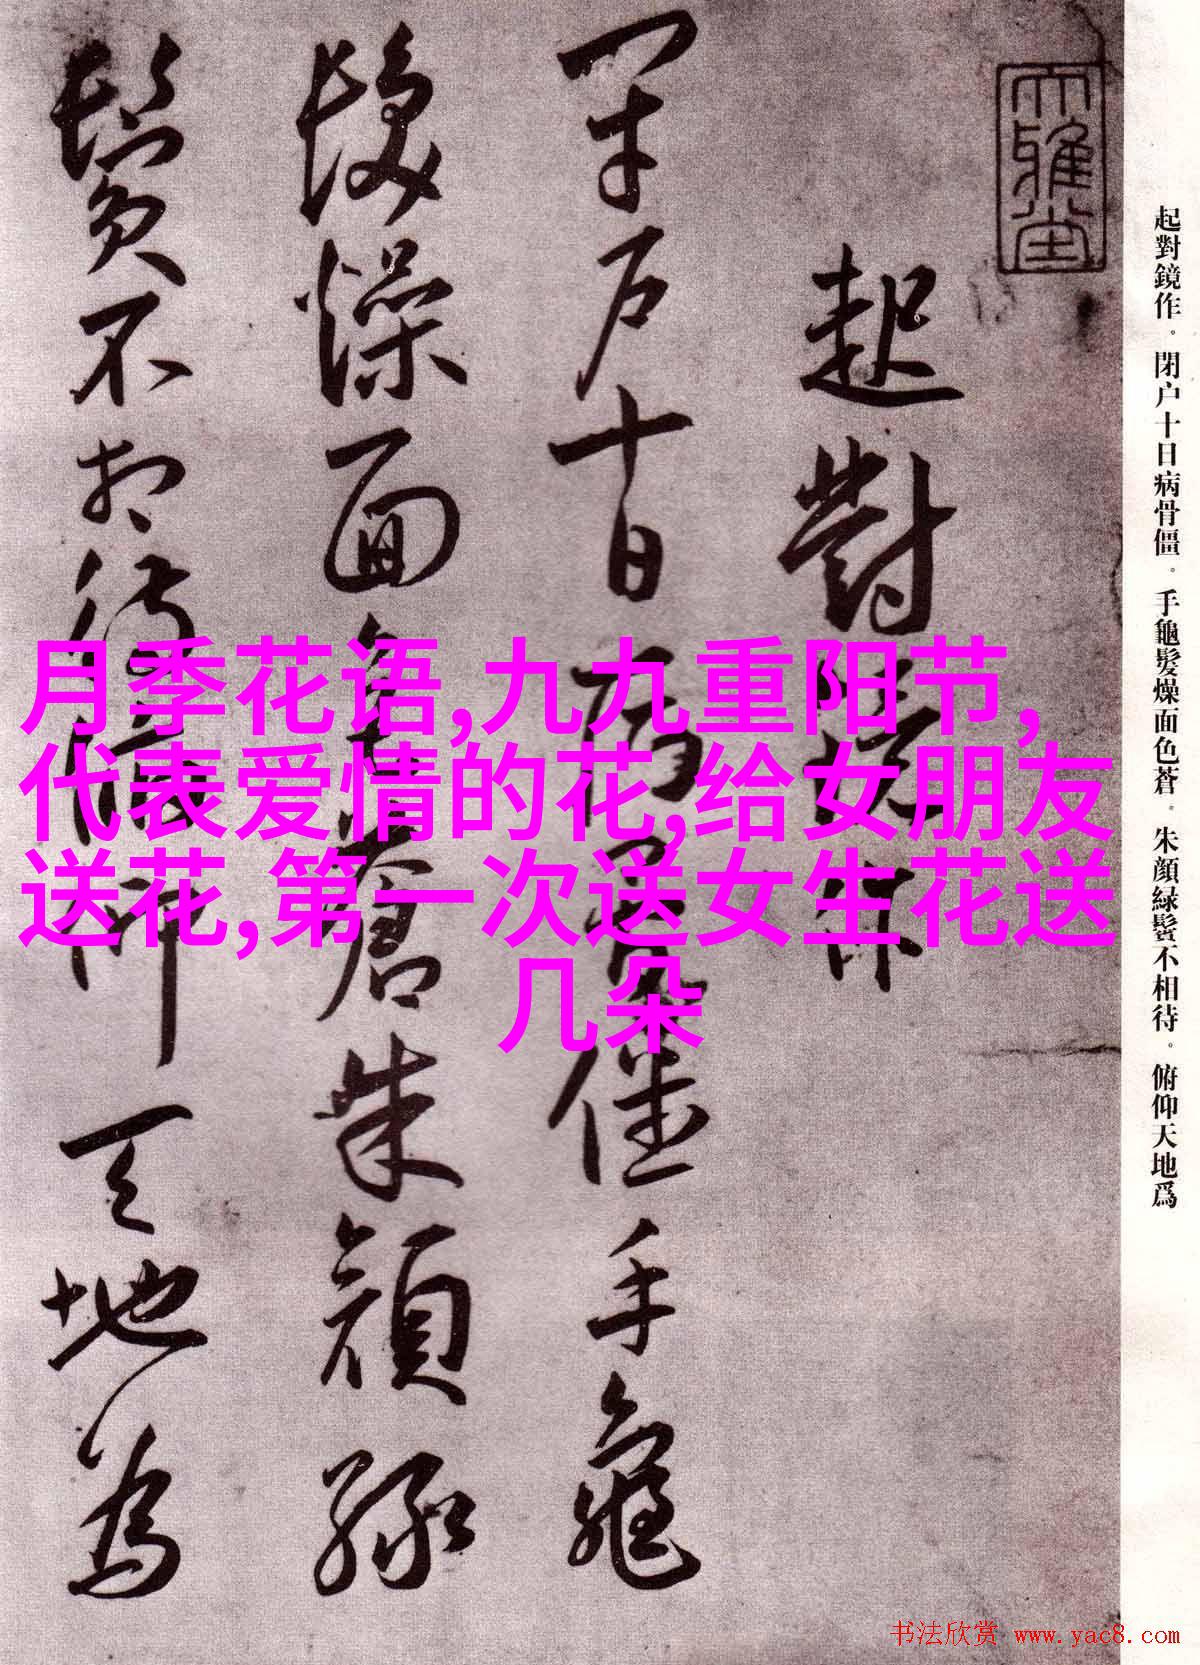 起對鏡作。閉户十日病骨僵。手龜髮燥面色蒼。朱顔緑鬢不相待。俯仰天地爲
大雅堂
起對鏡作
閉户十日病骨僵手龜
髮燥面色蒼朱顔緑
鬢不相待俯仰天地為
月季花语,九九重阳节,
代表爱情的花,给女朋友
送花,第一次送女生花送
几朵
书法欣赏 www.yac8.com